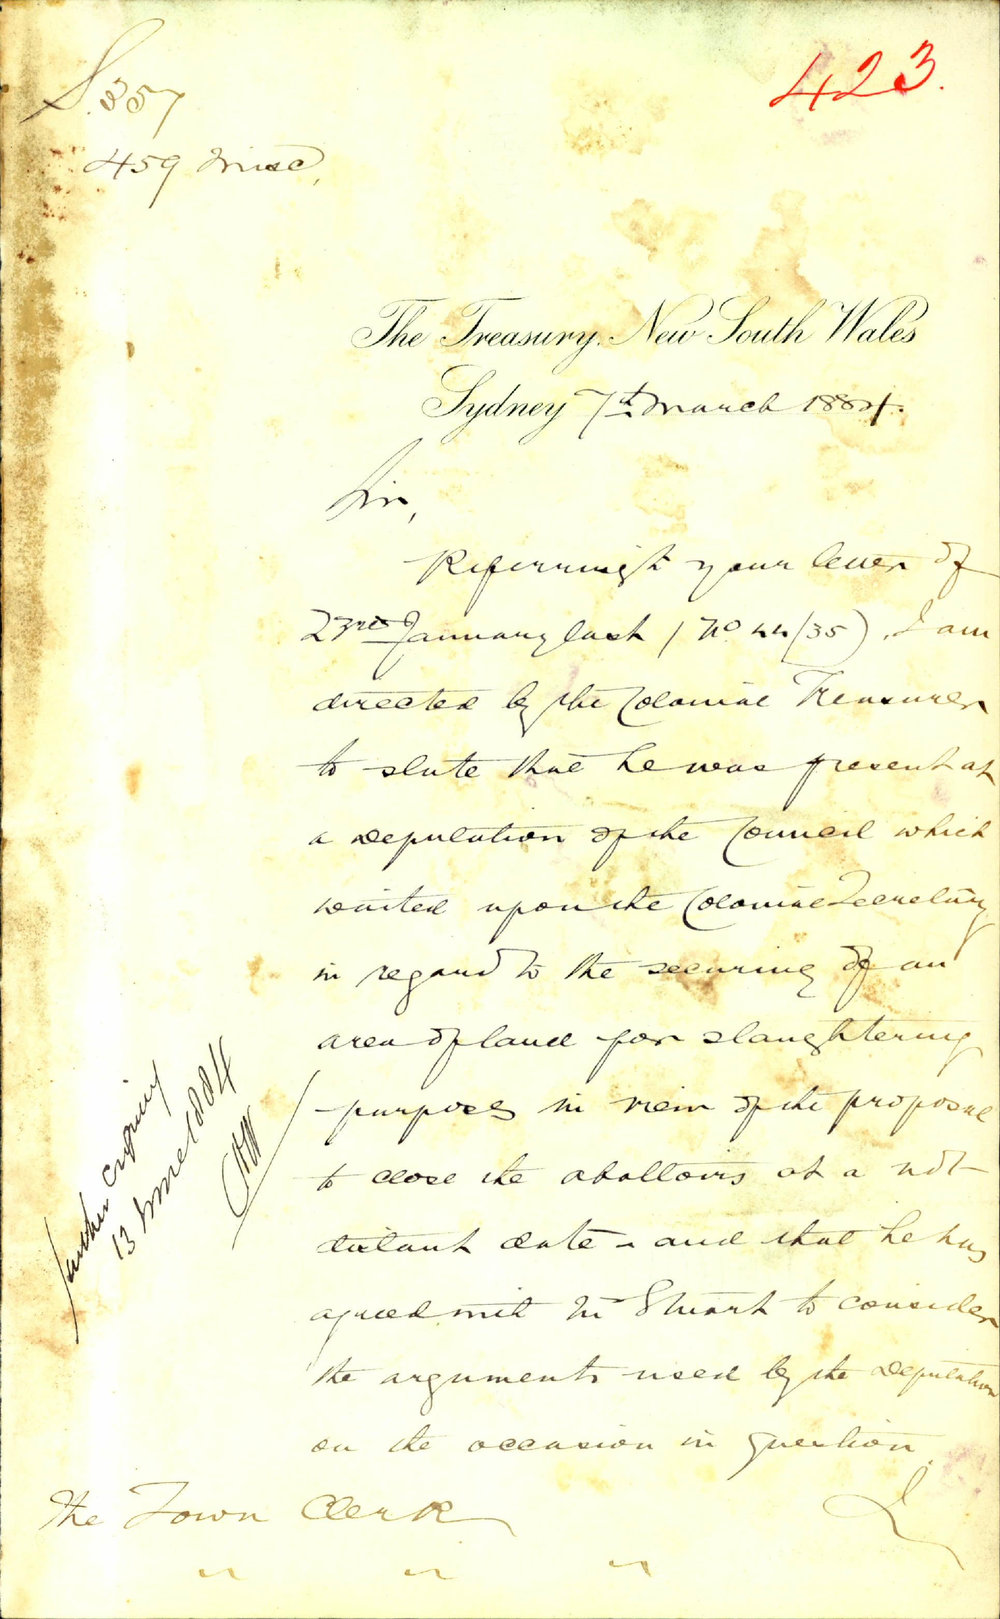 S. 357
423.
459 Misc.
The Treasury, New South Wales
Sydney 7th March 1884.
Sir,
Referring to your letter of
23rd January last (No 44/35), I am
directed by the Colonial Treasurer
to state that he was present at
a Deputation of the Council which
waited upon the Colonial Secretary
in regard to the securing of an
area of land for slaughtering
purposes in view of the proposal
to close the abattoirs at a not
distant date - and that he has
agreed with Mr Stuart to consider
the arguments used by the Deputation
on the occasion in question.
I
The Town Clerk
" " "
further enquiry
13 March 1884